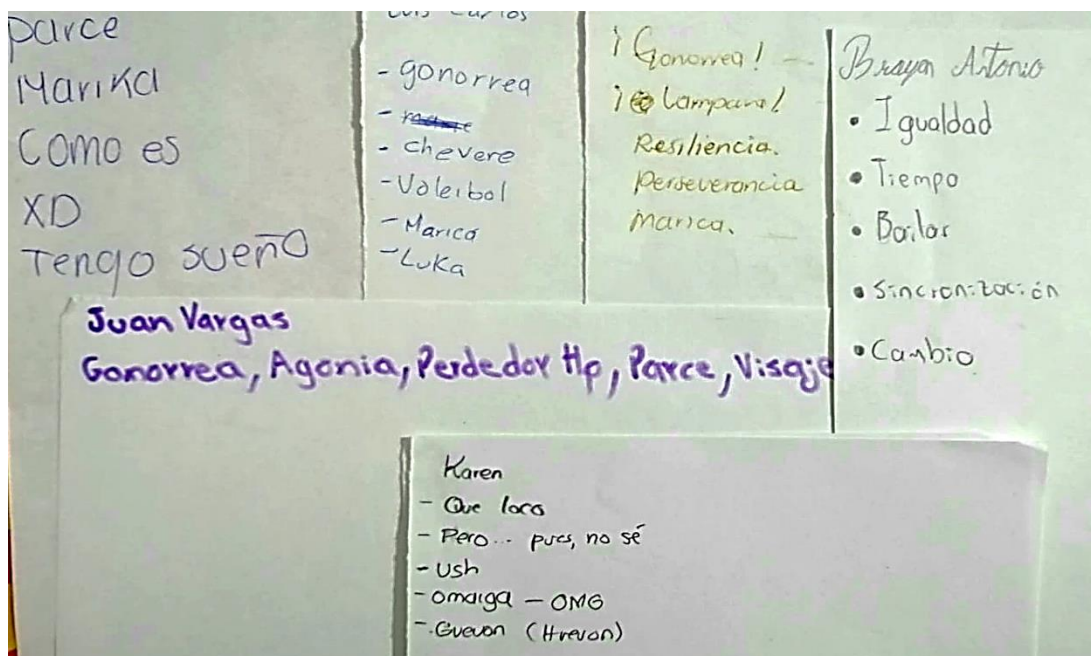 parce
Marika
Como es
XD
Tengo sueño
Luis Carlos
- gonorrea
- chevere
- Voleibol
- Marica
- Luka
¡Gonorrea!
¡Lampara!
Resiliencia.
Perseverancia
Marica.
Brayan Antonio
• Igualdad
• Tiempo
• Bailar
• Sincronización
• Cambio
Juan Vargas
Gonorrea, Agonia, Perdedor Hp, Parce, Visaje
Karen
- Que loco
- Pero... pues, no sé
- Ush
- omaiga - OMG
- Guevon (Hrevon)